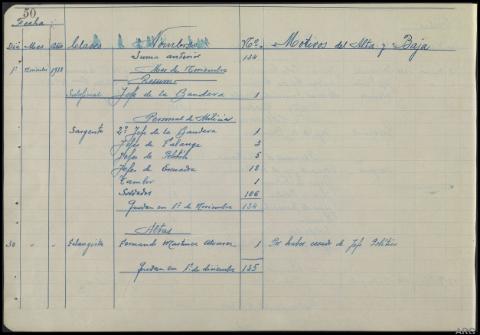 50
Fecha
Dia Mes Año Clases Nombres Nº. Motivos del Alta y Baja
Suma anterior 134
1º Noviembre 1938 Mes de Noviembre
Resumen
Suboficial Jefe de la Bandera 1
Personal de Milicias
Sargento 2º Jefe de la Bandera 1
Jefes de Falange 3
Jefes de Pelotón 5
Jefes de Escuadra 18
Tambor 1
Soldados 106
Quedan en 1º de Noviembre 134
Altas
30 " " Falangista Fernando Martinez Alvarez 1 Por haber cesado de Jefe Pelotón
Quedan en 1º de diciembre 135